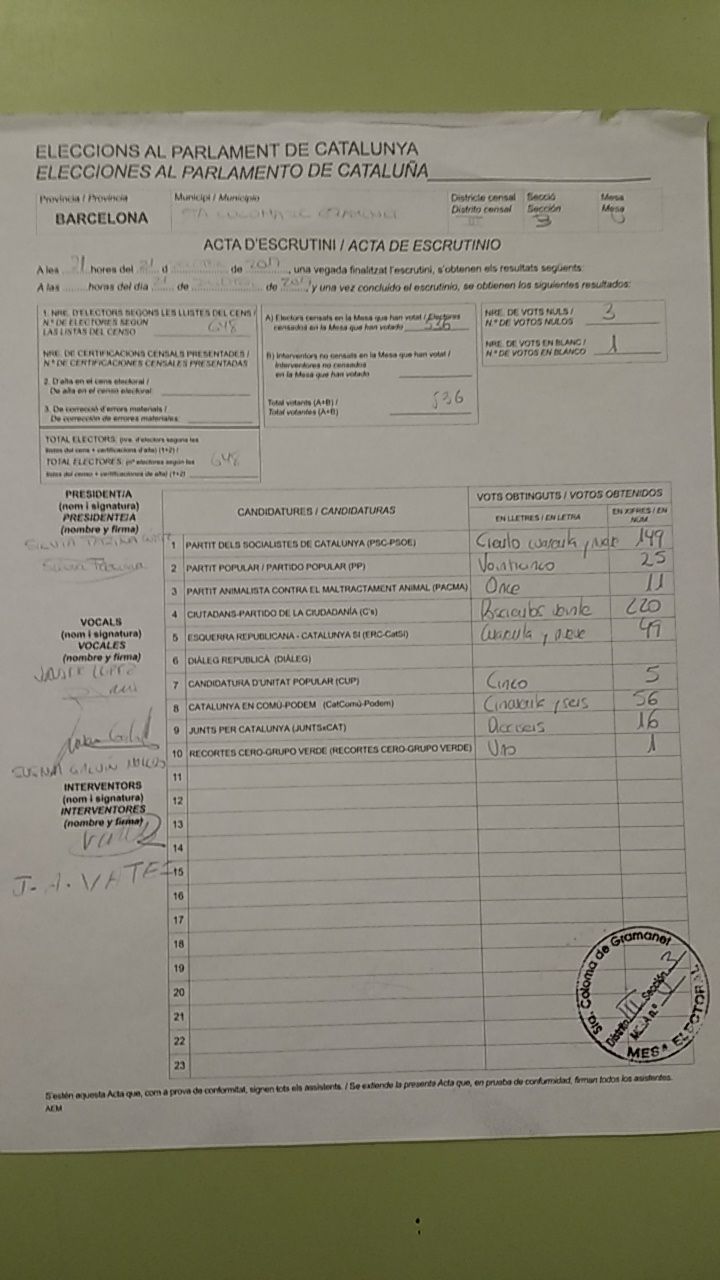 ELECCIONS AL PARLAMENT DE CATALUNYA
ELECCIONES AL PARLAMENTO DE CATALUÑA
Província / Provincia
BARCELONA
Municipi / Municipio
STA COLOMA DE GRAMENET
Districte censal
Distrito censal
III
Secció
Sección
3
Mesa
Mesa
U
ACTA D'ESCRUTINI / ACTA DE ESCRUTINIO
A les 21 hores del 21 d de 2017, una vegada finalitzat l'escrutini, s'obtenen els resultats següents:
A las horas del día 21 de de 2017, y una vez concluido el escrutinio, se obtienen los siguientes resultados:
1. NRE. D'ELECTORS SEGONS LES LLISTES DEL CENS /
N.º DE ELECTORES SEGÚN
LAS LISTAS DEL CENSO 648
NRE. DE CERTIFICACIONS CENSALS PRESENTADES /
N.º DE CERTIFICACIONES CENSALES PRESENTADAS
2. D'alta en el cens electoral /
De alta en el censo electoral:
3. De correcció d'errors materials /
De corrección de errores materiales:
TOTAL ELECTORS: (nre. d'electors segons les
llistes del cens + certificacions d'alta) (1+2) /
TOTAL ELECTORES: (nº electores según las
listas del censo + certificaciones de alta) (1+2) 648
A) Electors censats en la Mesa que han votat / Electores
censados en la Mesa que han votado 536
B) Interventors no censats en la Mesa que han votat /
Interventores no censados
en la Mesa que han votado
Total votants (A+B) /
Total votantes (A+B) 536
NRE. DE VOTS NULS /
N.º DE VOTOS NULOS 3
NRE. DE VOTS EN BLANC /
N.º DE VOTOS EN BLANCO 1
PRESIDENT/A
(nom i signatura)
PRESIDENTE/A
(nombre y firma)
SILVIA
Silvia
VOCALS
(nom i signatura)
VOCALES
(nombre y firma)
SUSANA GALVÁN
INTERVENTORS
(nom i signatura)
INTERVENTORES
(nombre y firma)
J. A. VATES
CANDIDATURES / CANDIDATURAS
VOTS OBTINGUTS / VOTOS OBTENIDOS
EN LLETRES / EN LETRA
EN XIFRES / EN NÚM
1 PARTIT DELS SOCIALISTES DE CATALUNYA (PSC-PSOE) Ciento cuarenta y nueve 149
2 PARTIT POPULAR / PARTIDO POPULAR (PP) Veinticinco 25
3 PARTIT ANIMALISTA CONTRA EL MALTRACTAMENT ANIMAL (PACMA) Once 11
4 CIUTADANS-PARTIDO DE LA CIUDADANÍA (C's) Doscientos veinte 220
5 ESQUERRA REPUBLICANA - CATALUNYA SI (ERC-CatSI) Cuarenta y nueve 49
6 DIÀLEG REPUBLICÀ (DIÀLEG)
7 CANDIDATURA D'UNITAT POPULAR (CUP) Cinco 5
8 CATALUNYA EN COMÚ-PODEM (CatComú-Podem) Cincuenta y seis 56
9 JUNTS PER CATALUNYA (JUNTSxCAT) Dieciseis 16
10 RECORTES CERO-GRUPO VERDE (RECORTES CERO-GRUPO VERDE) Uno 1
11
12
13
14
15
16
17
18
19
20
21
22
23
Sta. Coloma de Gramanet
Distrito III Sección 3
MESA n.º U
MESA ELECTORAL
S'estén aquesta Acta que, com a prova de conformitat, signen tots els assistents. / Se extiende la presente Acta que, en prueba de conformidad, firman todos los asistentes.
AEM